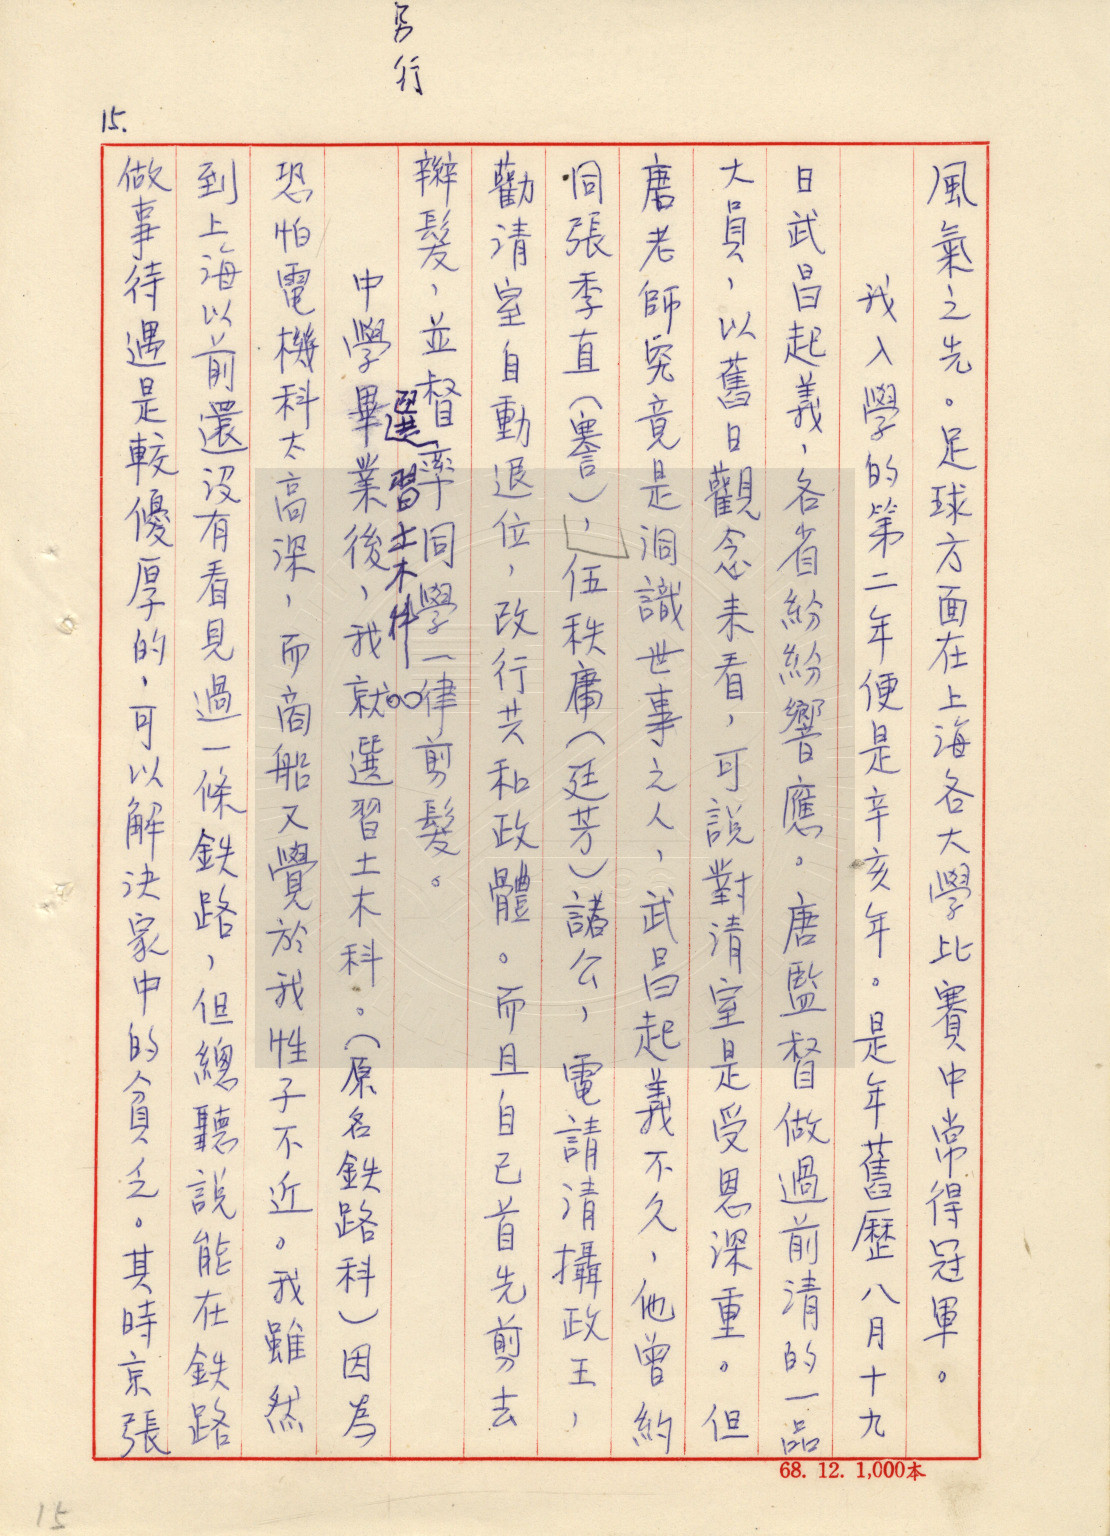 另行
15.
風氣之先。足球方面在上海各大學比賽中常得冠軍。
我入學的第二年便是辛亥年。是年舊歷八月十九
日武昌起義，各省紛紛響應。唐監督做過前清的一品
大員，以舊日觀念来看，可説對清室是受恩深重。但
唐老師究竟是洞識世事之人，武昌起義不久，他曾約
同張季直（謇），伍秩庸（廷芳）諸公，電請清攝政王，
勸清室自動退位，改行共和政體。而且自己首先剪去
辮髮，並督率同學一律剪髮。
選習土木科
中學畢業後，我就選習土木科。（原名鉄路科）因為
恐怕電機科太高深，而商船又覺於我性子不近。我雖然
到上海以前還沒有看見過一條鉄路，但總聽説能在鉄路
做事待遇是較優厚的，可以解決家中的貧乏。其時京張
68. 12. 1,000本
15